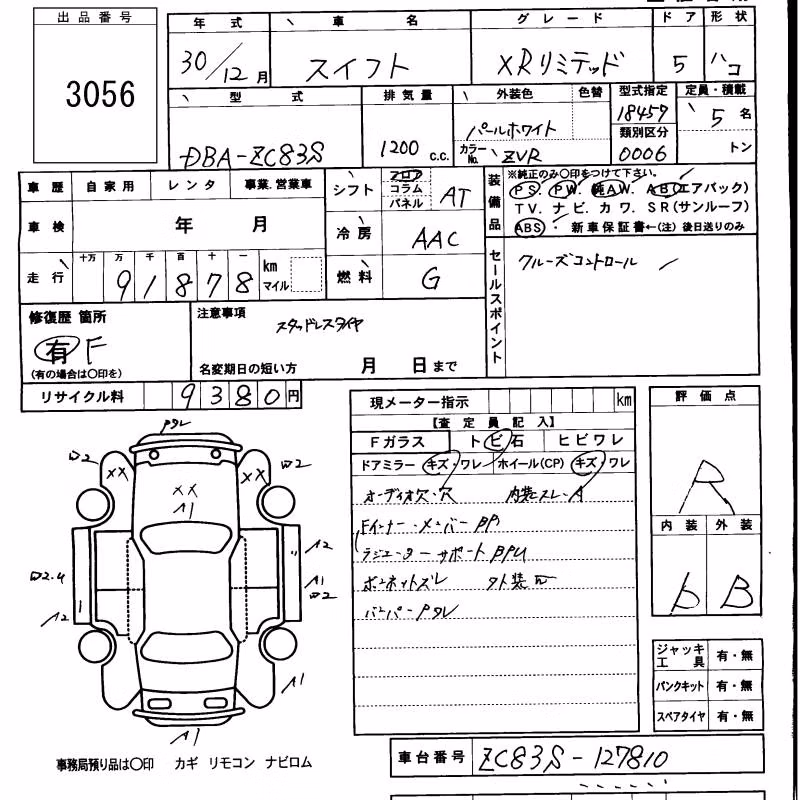 出品番号
3056
年式 車名 グレード ドア 形状
30/12月 スイフト XRリミテッド 5 ハコ
型式 排気量 外装色 色替 型式指定 定員・積載
DBA-ZC83S 1200 c.c. パールホワイト 18457 5名
カラーNo. ZVR 類別区分 0006 トン
車歴 自家用 レンタ 事業.営業車
シフト フロア コラム パネル AT
装備品
※純正のみ○印をつけて下さい。
PS. PW. 純AW. AB(エアバック)
TV. ナビ. カワ. SR(サンルーフ)
ABS ・ 新車保証書←(注) 後日送りのみ
車検 年 月
冷房 AAC
走行 十万 万 千 百 十 一
91878 km マイル
燃料 G
セールスポイント
クルーズコントロール
修復歴 箇所
有 F
(有の場合は○印を)
注意事項
スタッドレスタイヤ
名変期日の短い方 月 日まで
リサイクル料 9380円
現メーター指示 km
【査定員記入】
Fガラス トビ石 ヒビワレ
ドアミラー キズ・ワレ ホイール(CP) キズ ワレ
オーディオ欠・穴 内装スレ・A
Fインナー・メンバー BP
ラジエーターサポート BPU
ボンネットズレ 外装
バンパーPタレ
評価点
R
内装 外装
B
Pタレ
W2
XX
XX
W2
XX
A1
A2
W2.U
A1
W2
A2
A1
A1
ジャッキ工具 有・無
パンクキット 有・無
スペアタイヤ 有・無
事務局預り品は○印 カギ リモコン ナビロム
車台番号 ZC83S-127810